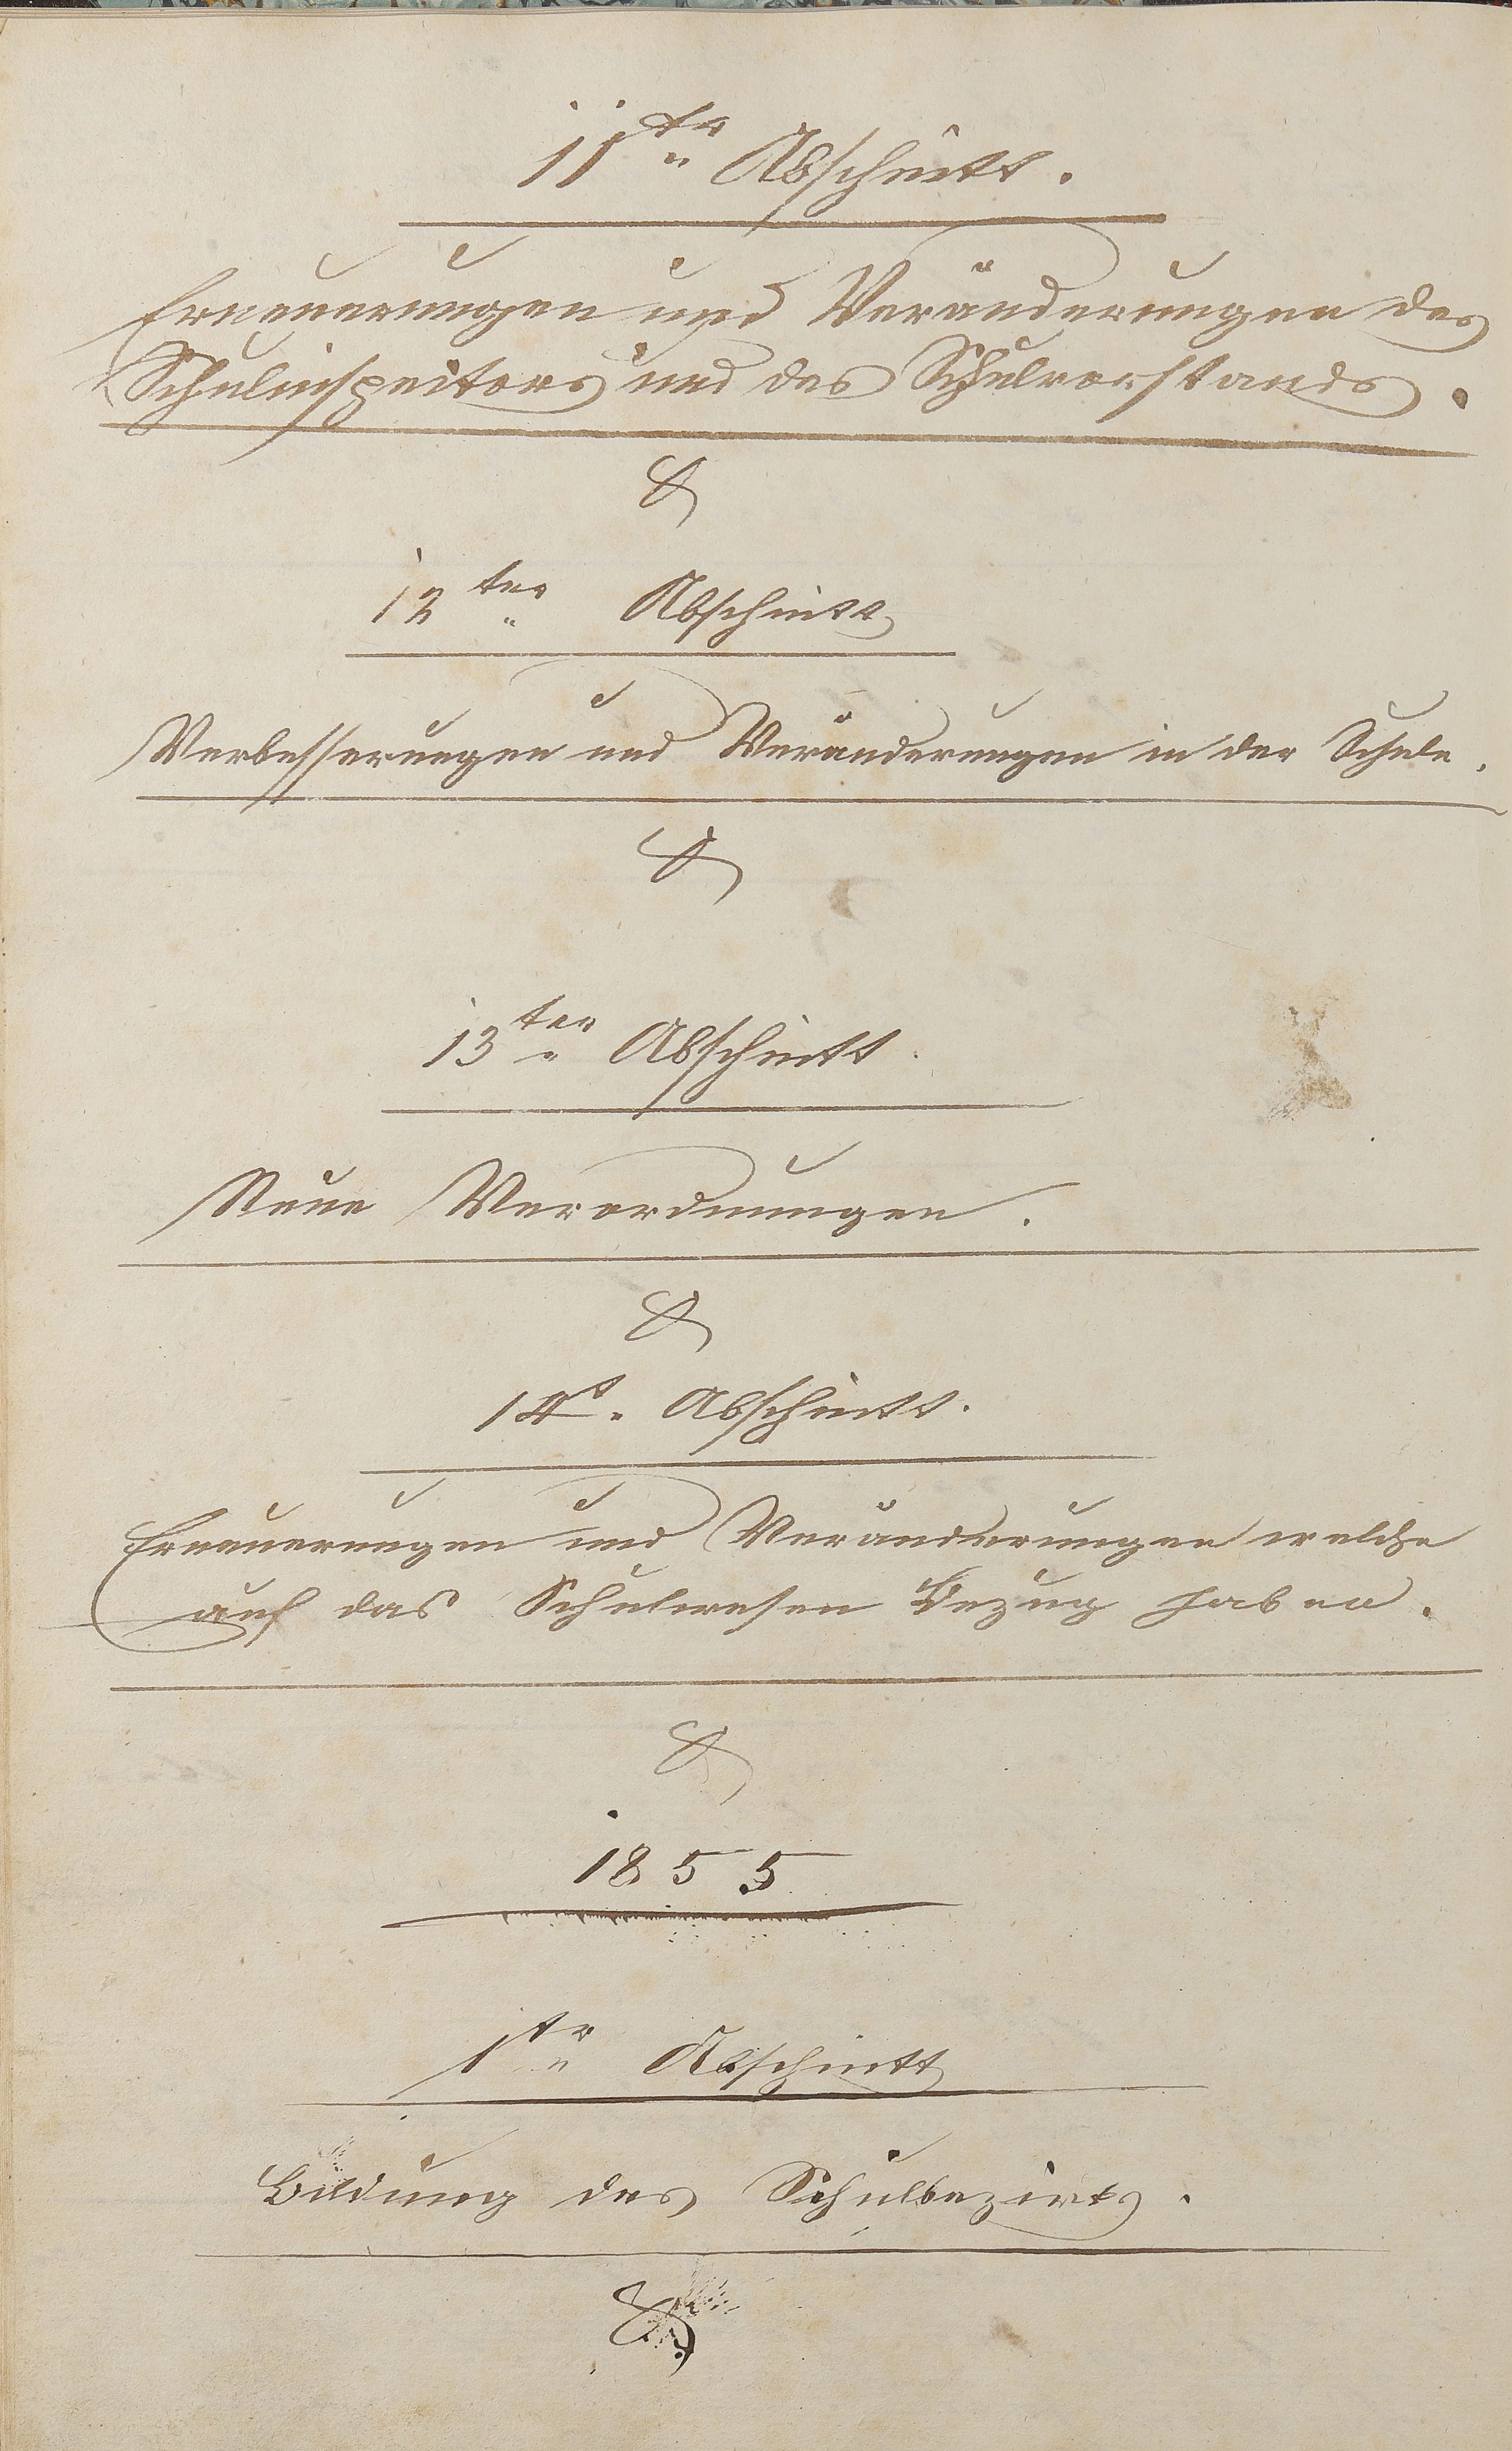 11te Abschnitt.
Erneuerungen und Veränderungen des
Schulinspectors und des Schulvorstands.
12ter Abschnitt
Verbesserungen und Veränderungen in der Schule.
13ter Abschnitt.
Neue Verordnungen.
14t. Abschnitt.
Erneuerungen und Veränderungen welche
auf das Schulwesen Bezug haben.
1855
1tr Abschnitt
Bildung des Schulbezirks.